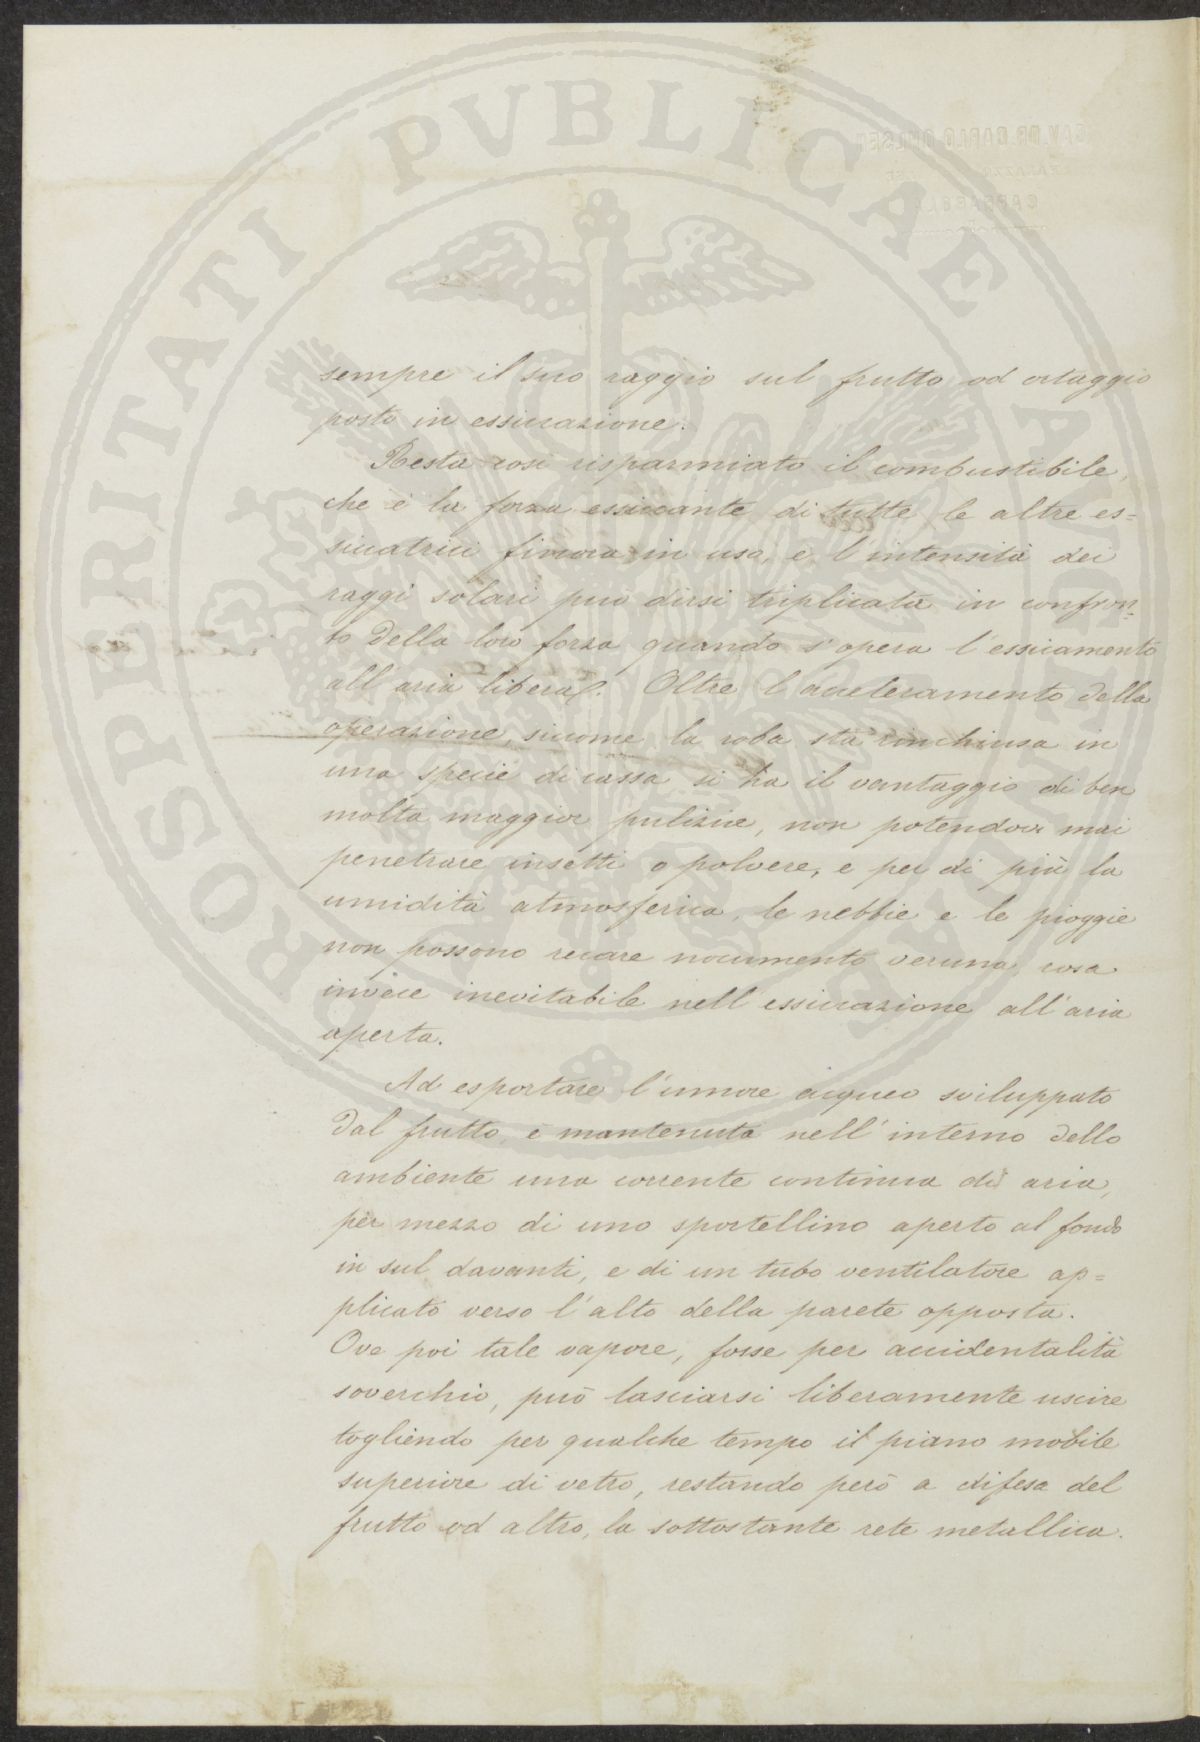 PROSPERITATI PVBLICAE AVGENDAE
sempre il suo raggio sul frutto od ortaggio
posto in essicazione.
Resta così risparmiato il combustibile,
che è la forza essiccante di tutte le altre es=
siccatrici finora in uso, e l'intensità dei
raggi solari può dirsi triplicata in confron=
to della loro forza quando s'opera l'essicamento
all'aria libera. Oltre l'acceleramento della
operazione, siccome la roba sta rinchiusa in
una specie di cassa si ha il vantaggio di ben
molta maggior pulizia, non potendovi mai
penetrare insetti o polvere, e per di più la
umidità atmosferica, le nebbie e le pioggie
non possono recare nocumento veruno, cosa
invece inevitabile nell'essicazione all'aria
aperta.
Ad esportare l'umore acqueo sviluppato
dal frutto, è mantenuta nell'interno dello
ambiente una corrente continua di aria,
per mezzo di uno sportellino aperto al fondo
in sul davanti, e di un tubo ventilatore ap=
plicato verso l'alto della parete opposta.
Ove poi tale vapore, fosse per accidentalità
soverchio, può lasciarsi liberamente uscire
togliendo per qualche tempo il piano mobile
superiore di vetro, restando però a difesa del
frutto od altro, la sottostante rete metallica.